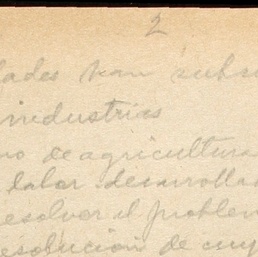 2
dades han subs
industrias
no de agricultura
labor desarrolla
esolver el problem
esolución de cuy